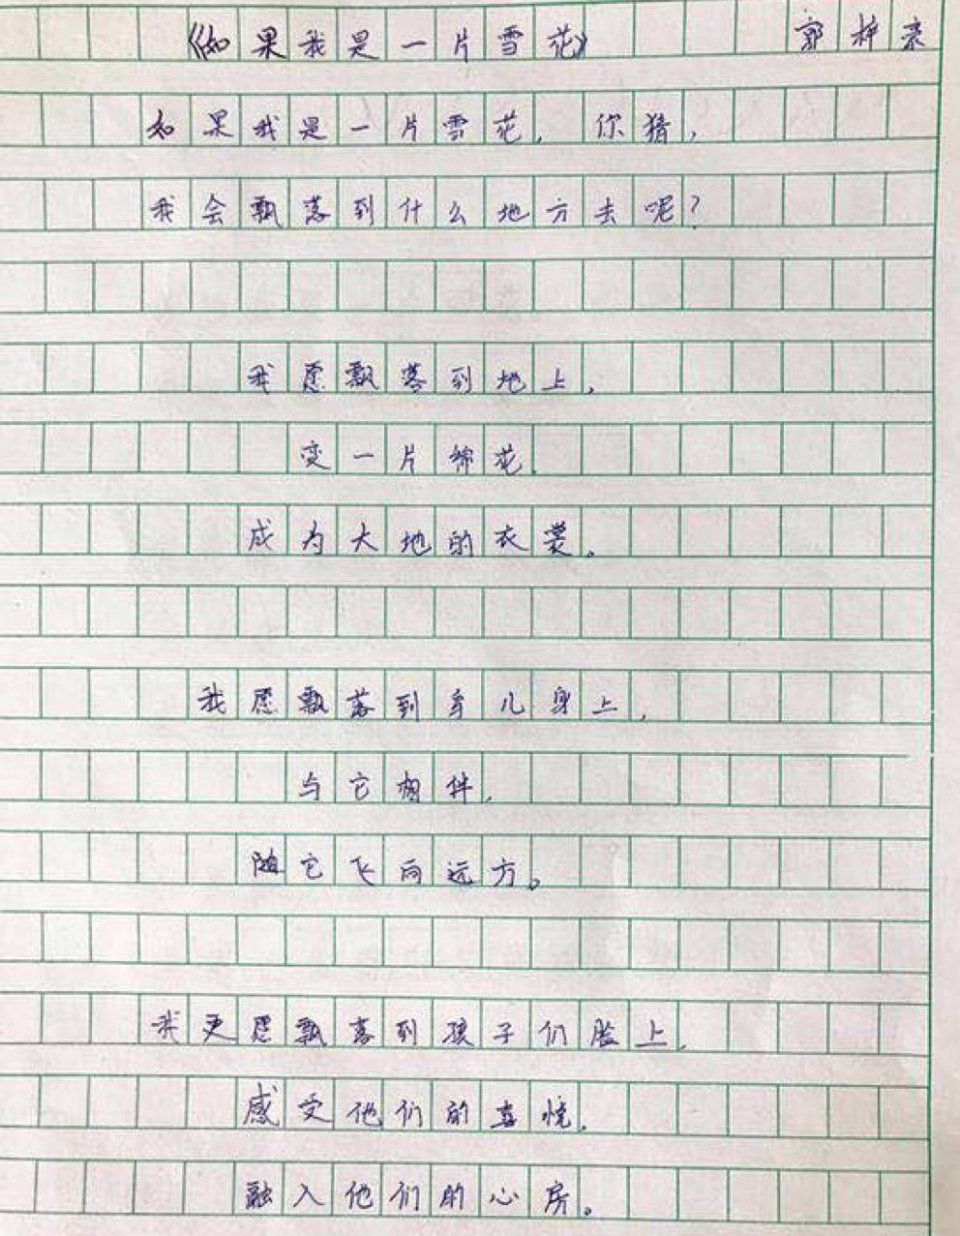 《如果我是一片雪花》 郭梓
如果我是一片雪花，你猜，
我会飘落到什么地方去呢？
我愿飘落到地上，
变一片绵花，
成为大地的衣裳。
我愿飘落到鸟儿身上，
与它相伴，
随它飞向远方。
我更愿飘落到孩子们脸上，
感受他们的喜悦，
融入他们的心房。